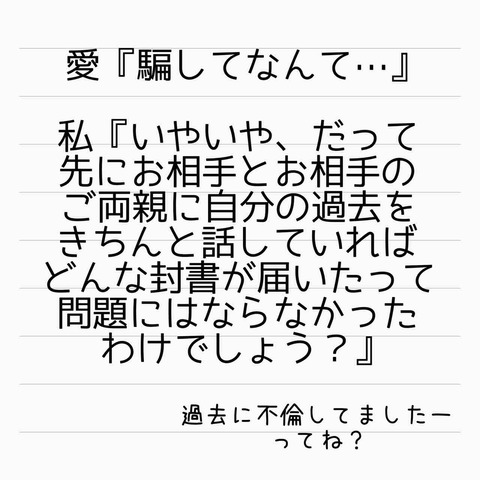 愛『騙してなんて…』
私『いやいや、だって
先にお相手とお相手の
ご両親に自分の過去を
きちんと話していれば
どんな封書が届いたって
問題にはならなかった
わけでしょう？』
過去に不倫してましたー
ってね？